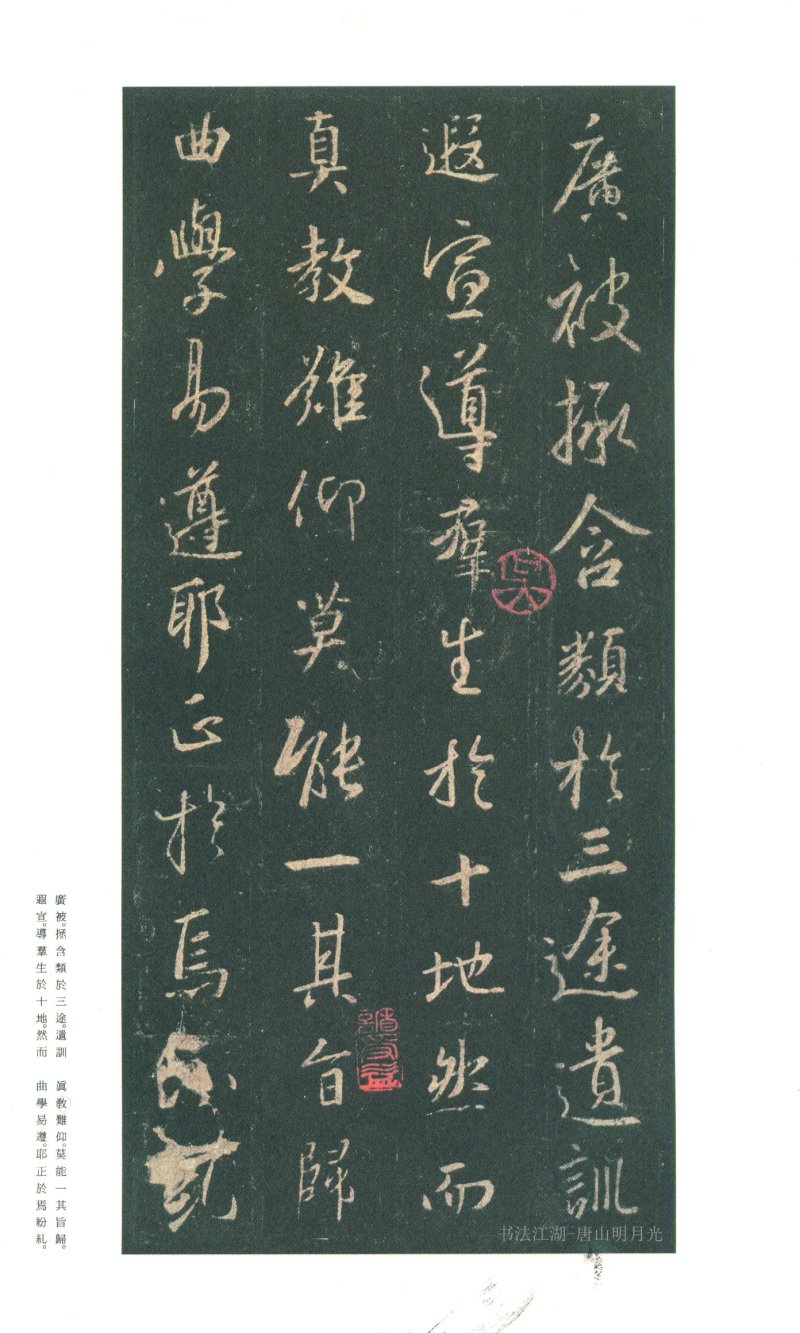 廣被拯含類於三途遺訓
遐宣導羣生於十地然而
真教難仰莫能一其旨歸
曲學易遵耶正於焉紛糺
廣被。拯含類於三途。遺訓
遐宣。導羣生於十地。然而
眞敎難仰。莫能一其旨歸。
曲學易遵。耶正於焉紛糺。
书法江湖-唐山明月光